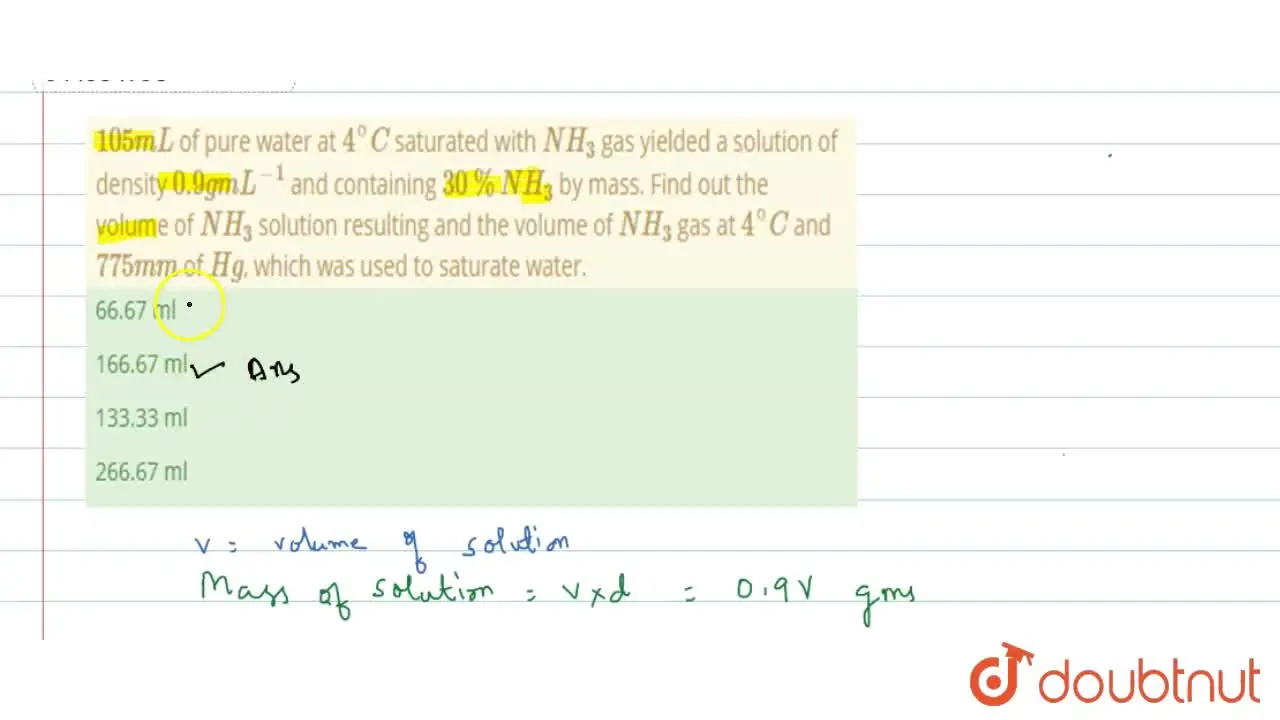 105mL of pure water at 4°C saturated with NH₃ gas yielded a solution of
density 0.9gmL⁻¹ and containing 30% NH₃ by mass. Find out the
volume of NH₃ solution resulting and the volume of NH₃ gas at 4°C and
775mm of Hg, which was used to saturate water.
66.67 ml
166.67 ml ✓ Ans
133.33 ml
266.67 ml
v = volume of solution
Mass of solution = v×d = 0.9V gms
doubtnut